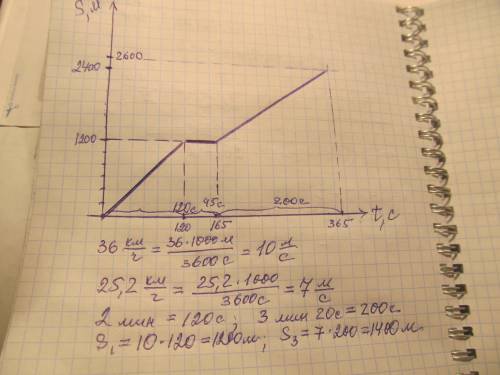 S, м
2600
2400
1200
120с 45с 200с
120 165 365 t, с
36 км/ч = 36·1000м/3600с = 10 м/с
25,2 км/ч = 25,2·1000/3600с = 7 м/с
2 мин = 120с; 3 мин 20с = 200с
S₁ = 10·120 = 1200м, S₃ = 7·200 = 1400м